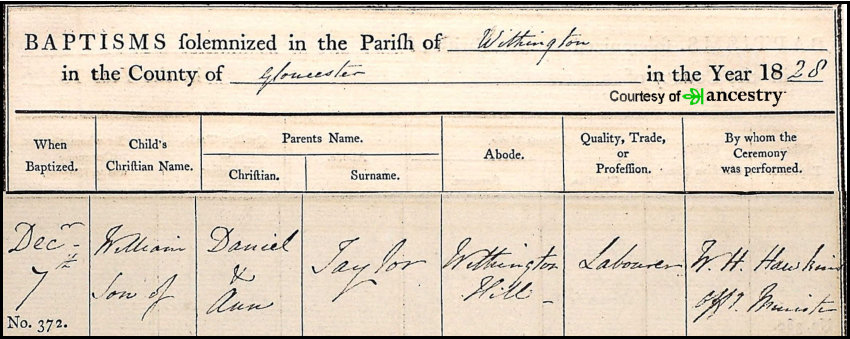 BAPTISMS solemnized in the Parish of Withington
in the County of Gloucester in the Year 1828
Courtesy of ancestry
When Baptized.
Child's Christian Name.
Parents Name.
Christian.
Surname.
Abode.
Quality, Trade, or Profession.
By whom the Ceremony was performed.
Decr 7th
William Son of
Daniel & Ann
Taylor
Withington Hill
Labourer
W. H. Hawkins Offg. Minister
No. 372.